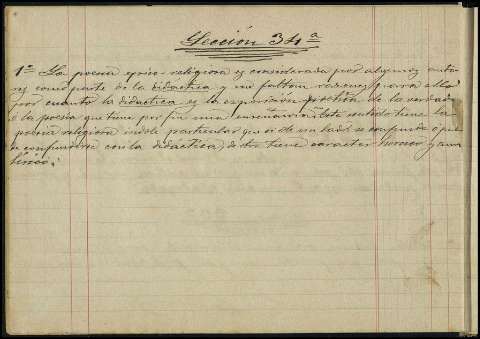 Lección 34ª
1º La poesía épico-religiosa es considerada por algunos auto
res como parte de la didactica y no faltan razones para ello
por cuanto la didactica es la expresión poética de la verdad
o la poesía que tiene por fin una enseñanza. Este sentido tiene la
poesía religiosa indole particular que si de un lado se confunde o pue
de confundirse con la didáctica, de otro tiene caracter heroico y aun
lírico.